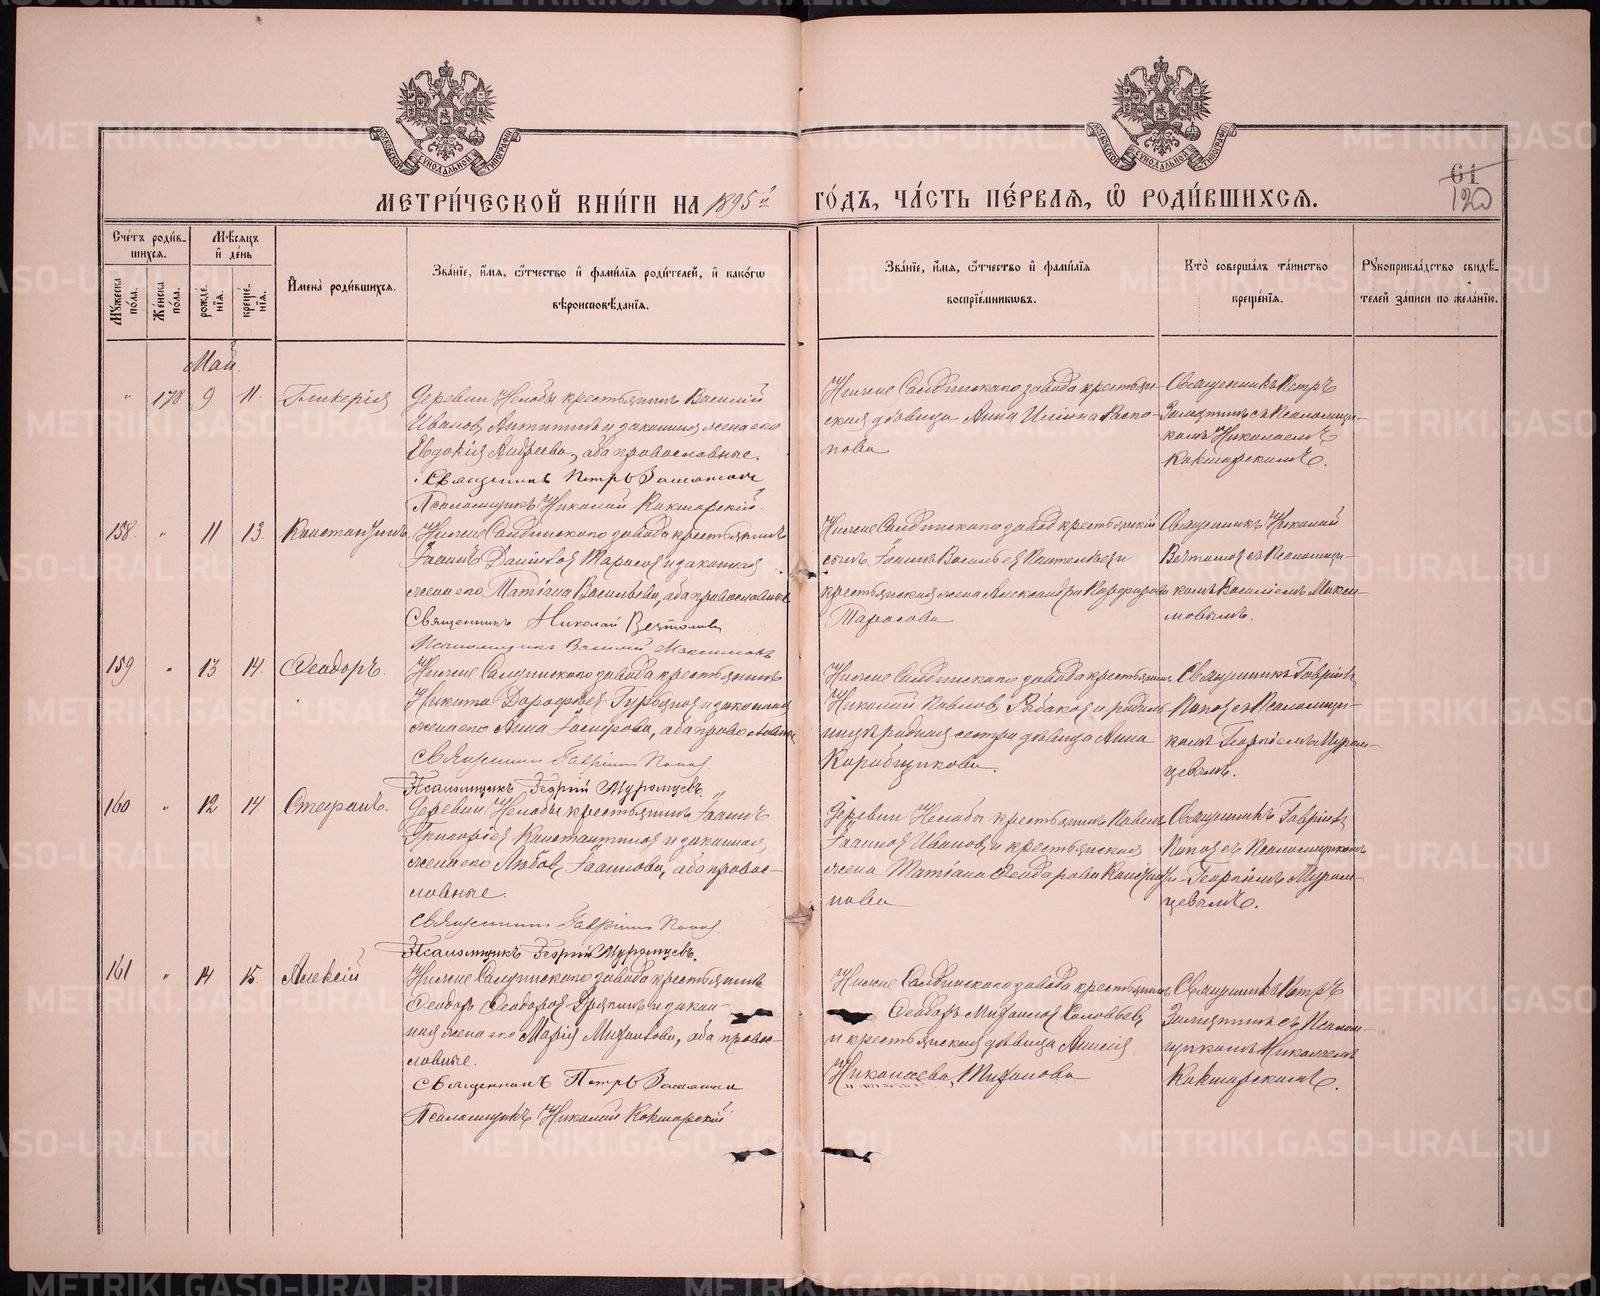 МЕТРИ́ЧЕСКОЙ КНИ́ГИ НА 1895й ГО́ДЪ, ЧА́СТЬ ПЕ́РВАЯ, Ѽ РОДИ́ВШИХСЯ.
61
120
Сче́тъ роди́в-
шихся.
Мѣ́сяцъ
и҆ де́нь
Мꙋ́жеска
по́ла.
Же́нска
по́ла.
рожде́-
нїѧ.
креще́-
нїѧ.
И҆мена̀ роди́вшихсѧ.
Зва́нїе, и҆́мѧ, ѻ҆́тчество и҆ фами́лїѧ роди́телей, и҆ како́гѡ
вѣроисповѣ́данїѧ.
Зва́нїе, и҆́мѧ, ѻ҆́тчество и҆ фами́лїѧ
воспрїе́мникѡвъ.
Кто̀ соверша́лъ та́инство
креще́нїѧ.
Рꙋкоприкла́дство свидѣ́-
телей за́писи по жела́нїю.
Май
" 178 9 11. Гликерія
Деревни Нелобы крестьянинъ Василій
Ивановъ Антипинъ и законная жена его
Евдокія Андреева, оба православные.
Священникъ Петръ Замятинъ
Псаломщикъ Николай Кокшарскій.
Нижне Салдинскаго завода крестьян-
ская дѣвица Анна Ильина Распо-
пова
Священникъ Петръ
Замятинъ съ Псаломщи-
комъ Николаемъ
Кокшарскимъ.
158. " 11 13. Константинъ.
Нижне Салдинскаго завода крестьянинъ
Іоаннъ Даниловъ Тарасовъ и законная
жена его Татіана Васильева, оба православные
Священникъ Николай Вечтомовъ
Псаломщикъ Василій Максимовъ
Нижне Салдинскаго завода крестьянскій
сынъ Іоаннъ Васильевъ и
крестьянская жена Александра Порфирова
Тарасова
Священникъ Николай
Вечтомовъ съ Псаломщи-
комъ Василіемъ Макси-
мовымъ.
159 " 13 14. Ѳеодоръ.
Нижне Салдинскаго завода крестьянинъ
Никита Дорофѣевъ и законная
жена его Анна оба православные
Священникъ Гавріилъ Поповъ
Псаломщикъ Георгій Муромцевъ.
Нижне Салдинскаго завода крестьянинъ
Николай Павловъ Рыбаковъ и родиль-
ницѣ родная сестра дѣвица Анна
Коробщикова.
Священникъ Гавріилъ
Поповъ съ Псаломщи-
комъ Георгіемъ Муром-
цевымъ.
160 " 12 14 Стефанъ.
Деревни Нелобы крестьянинъ Іоаннъ
Григорьевъ Константиновъ и законная
жена его Любовь Іоаннова, оба право-
славные.
Священникъ Гавріилъ Поповъ.
Псаломщикъ Георгій Муромцевъ.
Деревни Нелобы крестьянинъ Павелъ
Іоанновъ Ивановъ и крестьянская
жена Татіана Ѳеодорова Константи-
нова
Священникъ Гавріилъ
Поповъ съ Псаломщикомъ
Георгіемъ Муром-
цевымъ.
161 " 14 15. Алексій
Нижне Салдинскаго завода крестьянинъ
Ѳеодоръ Ѳеодоровъ и закон-
ная жена его Марія Михайлова, оба право-
славные.
Священникъ Петръ Замятинъ
Псаломщикъ Николай Кокшарскій
Нижне Салдинскаго завода крестьянинъ
Ѳеодоръ Михайловъ Соловьевъ
и крестьянская дѣвица Анисія
Николаева Тиханова
Священникъ Петръ
Замятинъ съ Псалом-
щикомъ Николаемъ
Кокшарскимъ.
METRIKI.GASO-URAL.RU